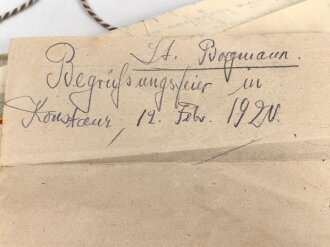 Lt. Bogmann.
Begrüßungsfeier in
Konstanz, 12. Febr. 1920.